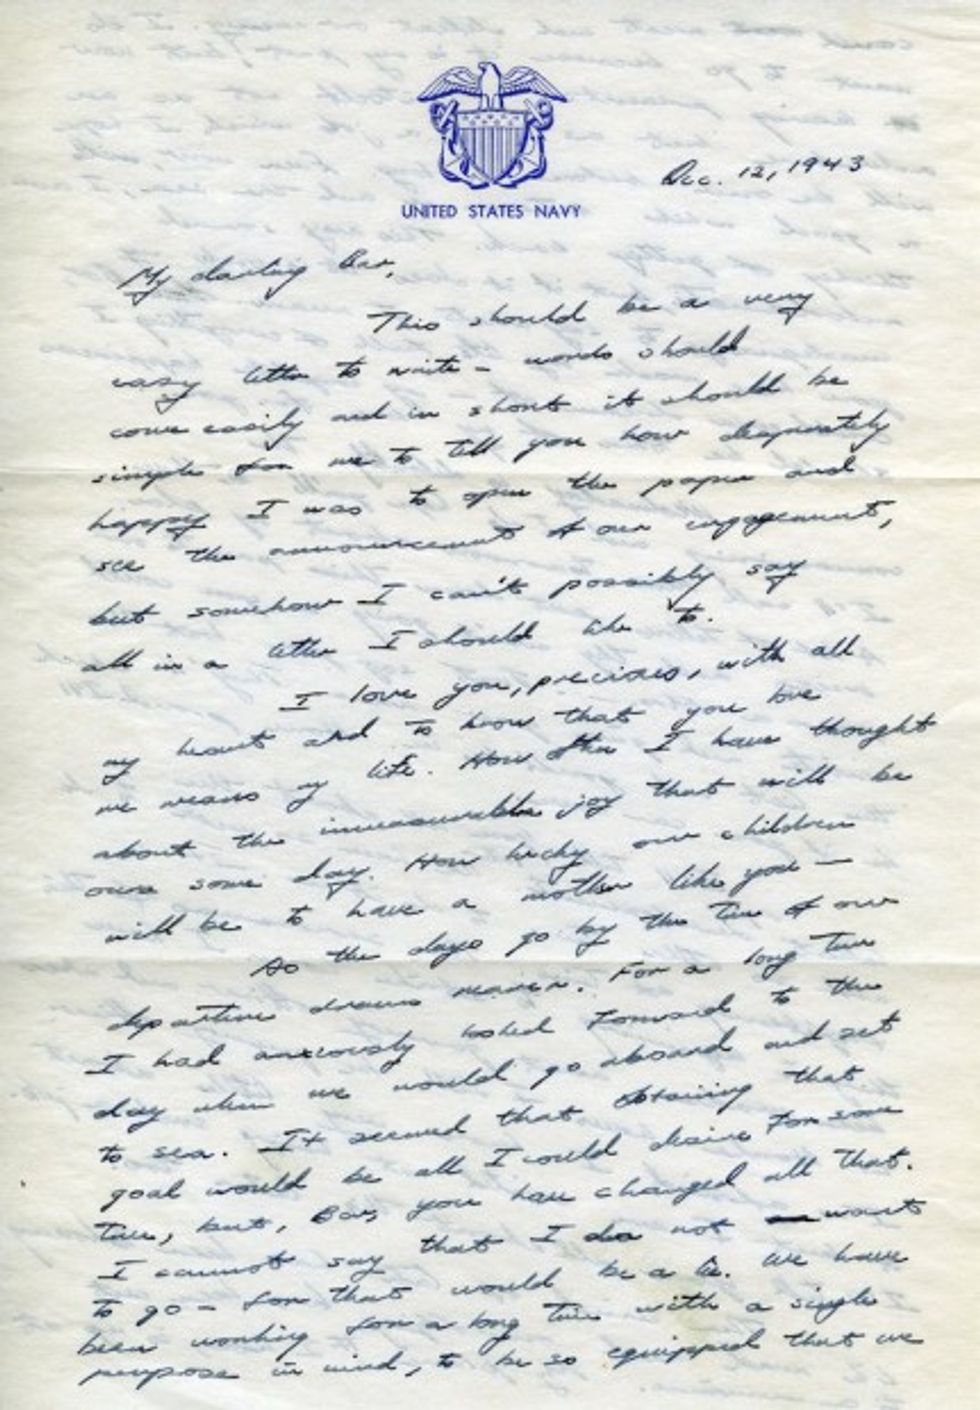 UNITED STATES NAVY
Dec. 12, 1943
My darling Bar,
This should be a very
easy letter to write – words should
come easily and in short it should be
simple for me to tell you how desperately
happy I was to open the paper and
see the announcement of our engagement,
but somehow I can't possibly say
all in a letter I should like to.
I love you, precious, with all
my heart and to know that you love
me means my life. How often I have thought
about the immeasurable joy that will be
ours some day. How lucky our children
will be to have a mother like you —
As the days go by the time of our
departure draws nearer. For a long time
I had anxiously looked forward to the
day when we would go aboard and set
to sea. It seemed that obtaining that
goal would be all I could desire for some
time, but, Bar, you have changed all that.
I cannot say that I do not want
to go – for that would be a lie. We have
been working for a long time with a single
purpose in mind, to be so equipped that we